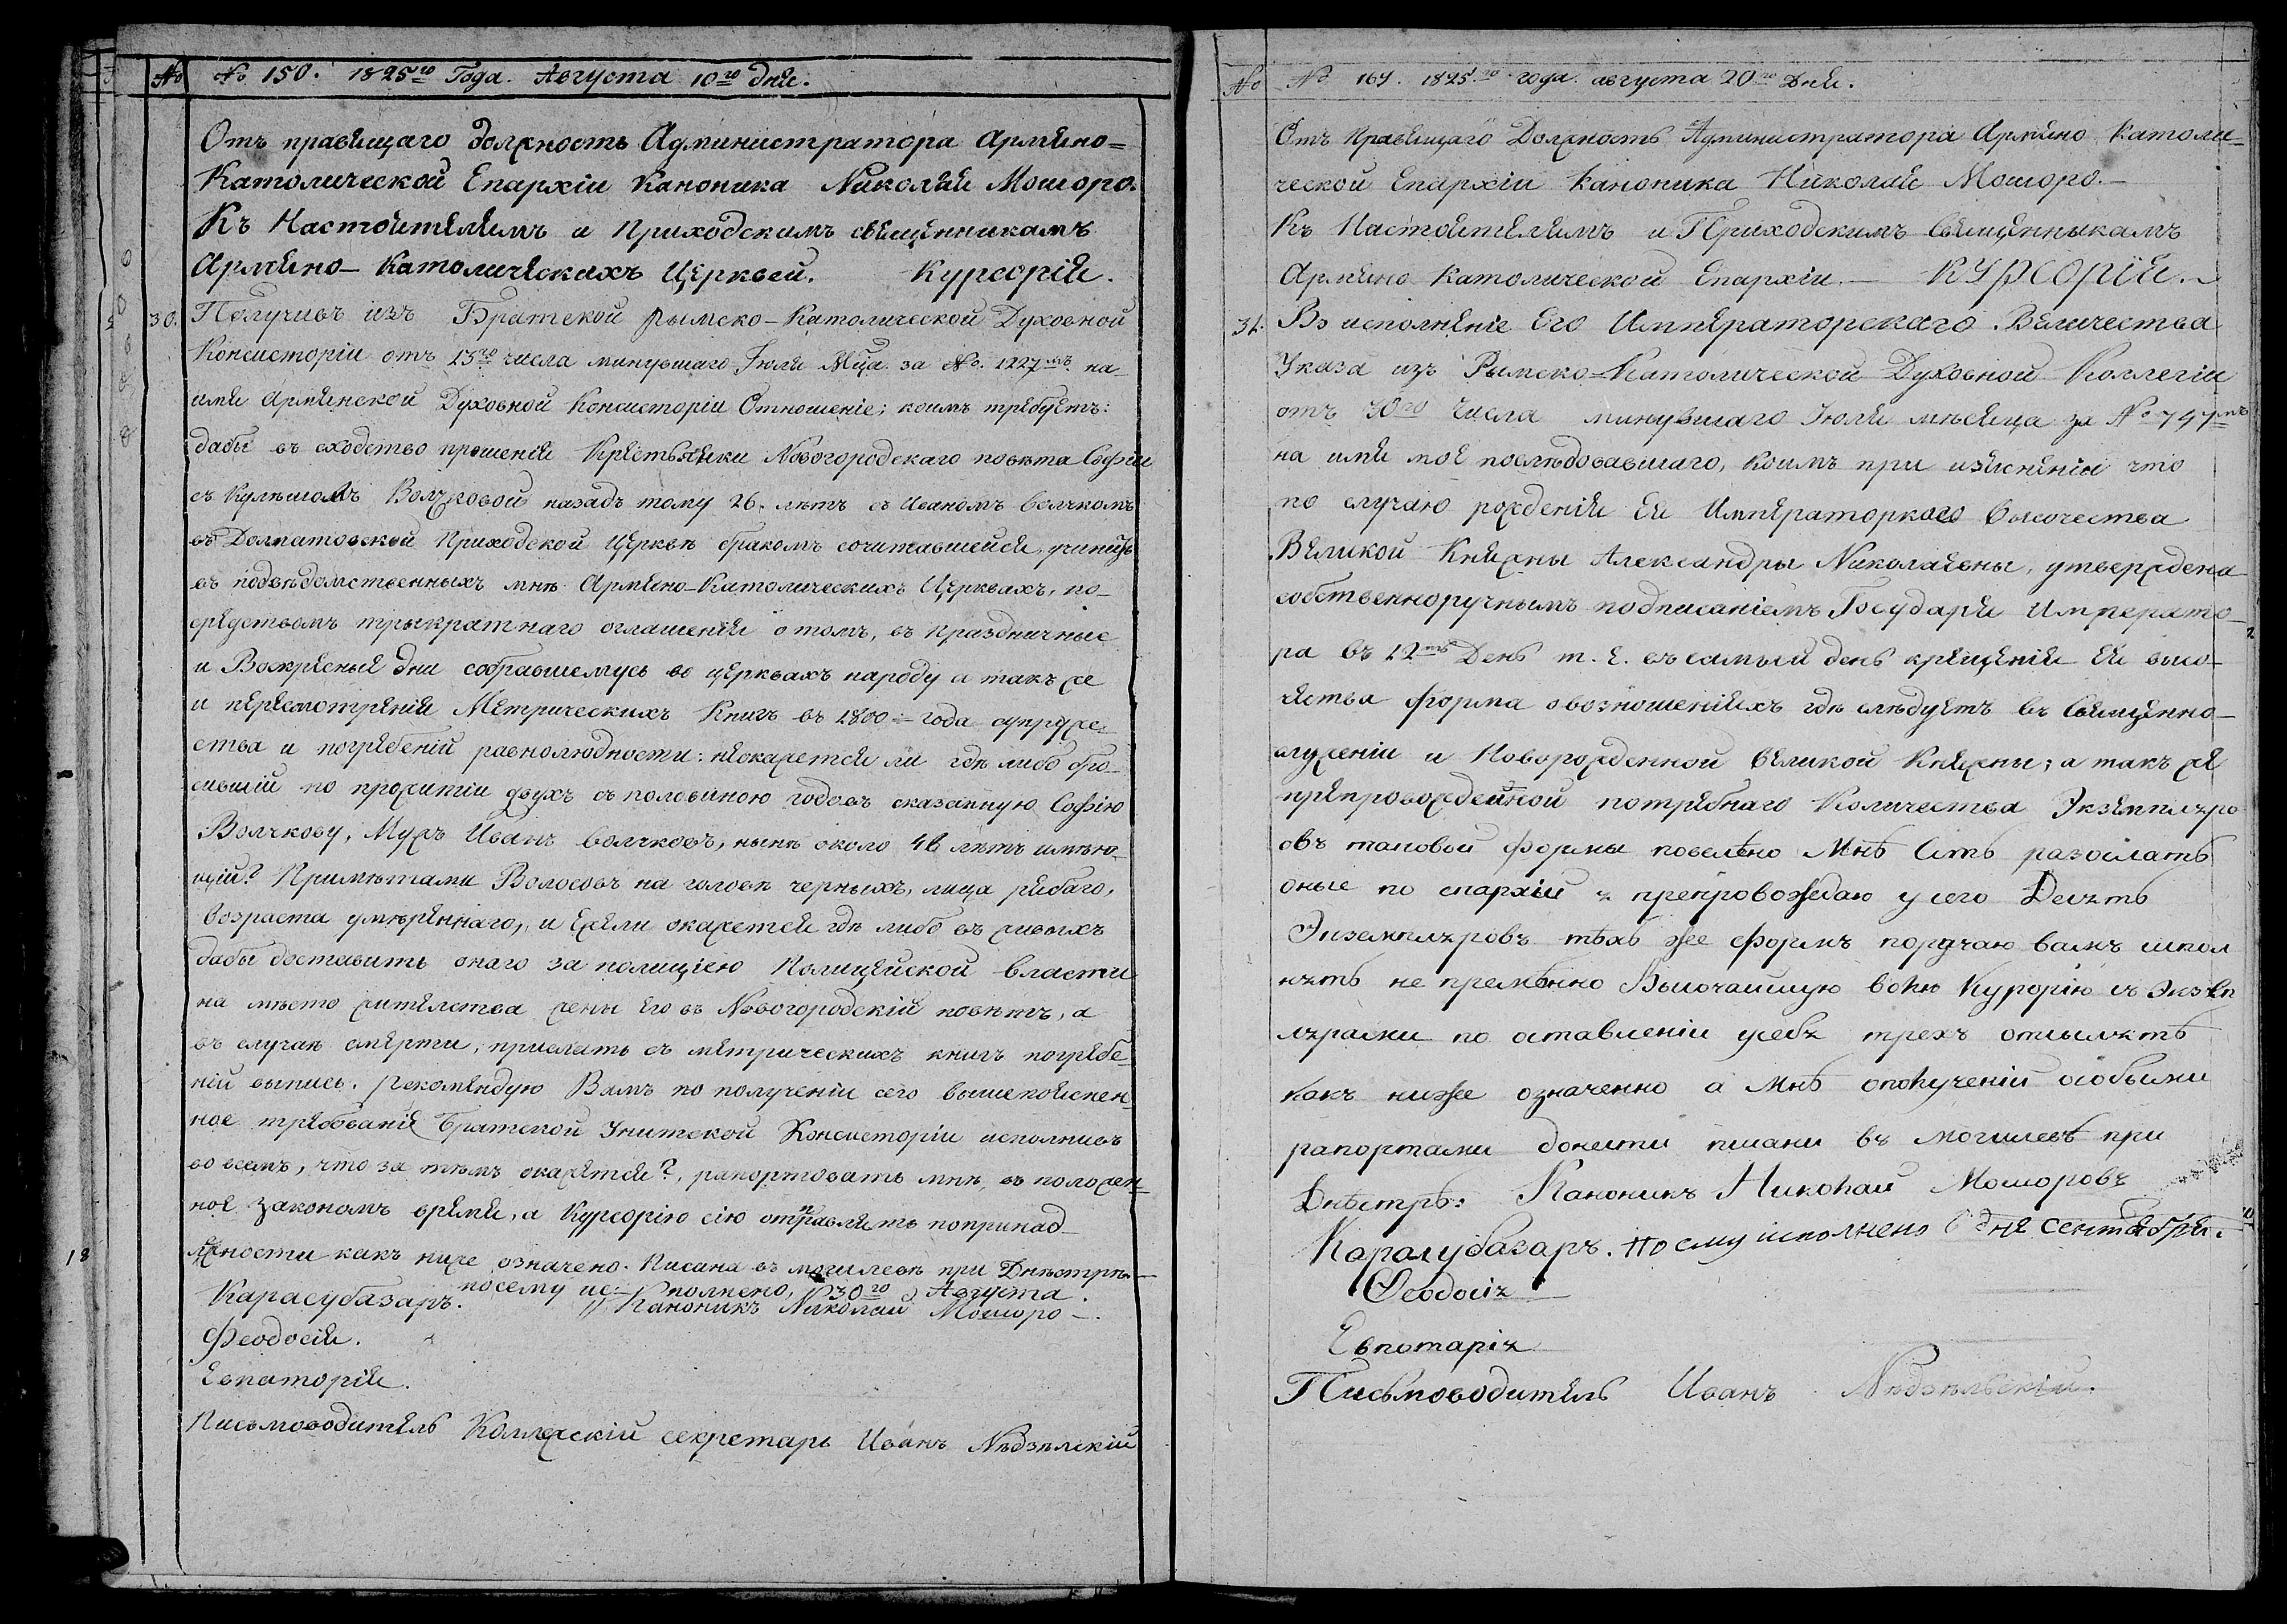 № № 150. 1825го Года. Августа 10го дня.
Отъ правящаго должность Администратора Армяно=
Католической Епархіи Каноника Николая Мошоро.
Къ Настоятелямъ и приходскимъ священникамъ
Армяно-Католическихъ Церквей. Курсорія.
30. Получивъ изъ Братской Рымско-Католической Духовной
Консисторіи отъ 13го числа минувшаго Іюля Мца за №. 1227мъ на
имя Армянской Духовной Консисторіи Отношеніе; коимъ требуетъ:
дабы въ сходство прошенія Крестьянки Новогородскаго повѣта Софіи
съ Кулешовъ Волчковой назадъ тому 26. лѣтъ съ Иваномъ Волчкомъ
въ Долматовской Приходской Церквѣ бракомъ сочитавшейся, учинить
въ подвѣдомственныхъ мнѣ Армяно-Католическихъ Церквахъ, по-
средствомъ трыкратнаго оглашенія о томъ, въ праздничные
и Воскресные дни собравшемусь во церквахъ народу а такъ же
и пересмотренія Метрическихъ Книгъ въ 1800= года супруже-
ства и погребеній равнолюдности: неокажется ли гдѣ либо бро-
сившій по прожитіи двухъ съ половиною годовъ сказанную Софію
Волчкову, Мужъ Иванъ Волчковъ, нынѣ около 48 лѣтъ имѣю-
щій? Примѣтами Волосовъ на головѣ черныхъ, лица рябаго,
возраста умѣреннаго, и Ежели окажется гдѣ либо въ живыхъ
дабы доставить онаго за полиціею Полицейской власти
на мѣсто жителства жены Его въ Новогородскій повѣтъ, а
въ случаѣ смерти, прислать съ метрическихъ книгъ погребе-
ній выпись. Рекомендую Вамъ по полученіи сего вышепояснен-
ное требованіе Братской Унитской Консисторіи исполнивъ
во всемъ, что за тѣмъ окажется?, рапортовать мнѣ въ положен-
ное Закономъ время, а Курсорію сію отправлять попринад-
лежности какъ ниже означено. Писана въ могилевѣ при Днѣстрѣ.
посему ис- полнено, 30го Августа.
Карасубазаръ. Каноникъ Николай Мошоро.
Феодосія.
Евпаторія.
Писмоводитель Коллежскій секретарь Иванъ Нѣдзѣлскій
18
№ № 167. 1825го года. августа 20го Дня.
Отъ правящаго Должность Администратора Армяно Католи-
ческой Епархіи Каноника Николая Мошоро.
Къ Настоятелямъ и Приходскимъ Священныкамъ
Армяно Католической Епархіи. КУРСОРІЯ.
31. Во исполненіе Его Императорскаго Величества
Указа изъ Рымско-Католической Духовной Коллегіи
отъ 30го числа минувшаго Іюля мѣсяца за № 747мъ
на имя мое послѣдовавшаго, коимъ при изясненіи что
по случаю рожденія Ея Императоркаго Высочества
Великой Княжны Александры Николаевны, утверждена
собственноручнымъ подписаніемъ Государя Императо-
ра въ 12тъ День т. е. въ самый день крещенія Ея высо-
чества форма овозношеніяхъ гдѣ слѣдуетъ въ Священно-
служеніи и Новорожденной Великой Княжны; а такъ же
препровожденной потребнаго Количества Экземпляро
овъ таковой формы повелѣно Мнѣ Стъ разослать
оные по епархіи препровождаю у сего Десять
Экземпляровъ тѣхъ же формъ поручаю вамъ испол
нять не премѣнно Высочайшую волю Курорію съ Экзем
лярами по оставленіи усебя трехъ отсылать
какъ ниже означенно а Мнѣ ополученіи особыми
рапортами донести писани въ могилевѣ при
Днѣстрѣ: Каноникъ Николай Мошоровъ
Карасубазаръ. По сму исполнено 6 дня сентября.
Феодосія
Евпотарія
Письмоводитель Иванъ Нѣдзѣльскій.